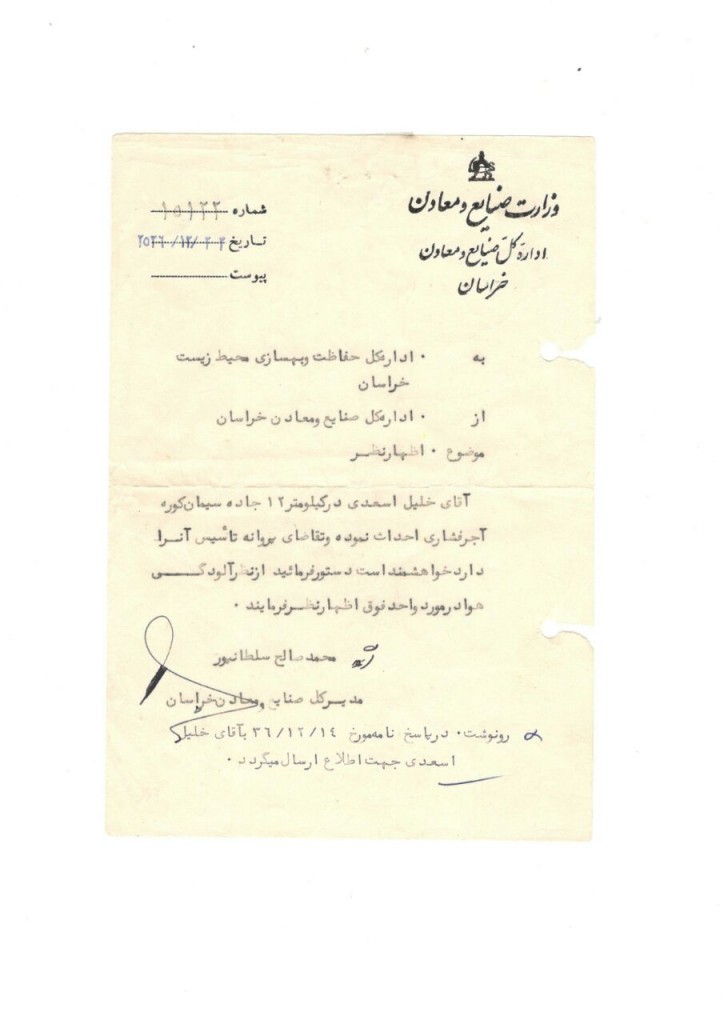 وزارت صنایع و معادن
اداره کل صنایع و معادن
خراسان
شماره ۱۵۱۲۲
تاریخ
پیوست
به ۰ اداره‌کل حفاظت وبهسازی محیط زیست
خراسان
از ۰ اداره‌کل صنایع ومعادن خراسان
موضوع ۰ اظهارنظر
آقای خلیل اسعدی درکیلومتر۱۲ جاده سیمان‌کوره
آجرفشاری احداث نموده وتقاضای پروانه تاًسیس آنرا
داردخواهشمنداست دستورفرمائید ازنظرآلودگی
هوادرموردواحدفوق اظهارنظرفرمایند ۰
محمدصالح سلطانپور
مدیرکل صنایع ومعادن‌خراسان
رونوشت۰ درپاسخ نامه‌مورخ ۳۶/۱۲/۱۴ بآقای خلیل
اسعدی جهت‌اطلاع ارسال‌میگردد ۰